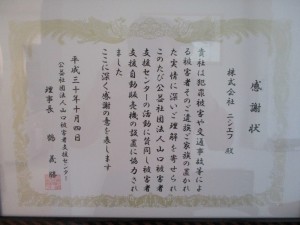 感謝状
株式会社 ニシエフ 殿
貴社は犯罪被害や交通事故等によ
る被害者そのご遺族ご家族の置かれ
た実情に深いご理解を寄せられ
このたび公益社団法人山口被害者
支援センターの活動に賛同し被害者
支援自動販売機の設置に協力され
ました
ここに深く感謝の意を表します
平成三十年十月四日
公益社団法人山口被害者支援センター
理事長 鶴 義勝